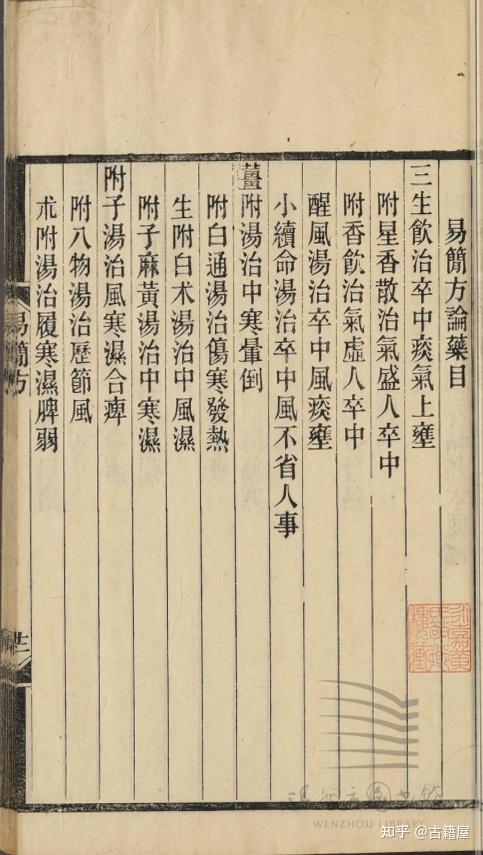 易簡方論藥目
三生飲治卒中痰氣上壅
附星香散治氣盛人卒中
附香飲治氣虛人卒中
醒風湯治卒中風痰壅
小續命湯治卒中風不省人事
薑附湯治中寒暈倒
附白通湯治傷寒發熱
生附白术湯治中風濕
附子麻黃湯治中寒濕
附子湯治風寒濕合痺
附八物湯治歷節風
朮附湯治履寒濕脾弱
易簡方
WENZHOU LIBRARY
知乎 @古籍屋